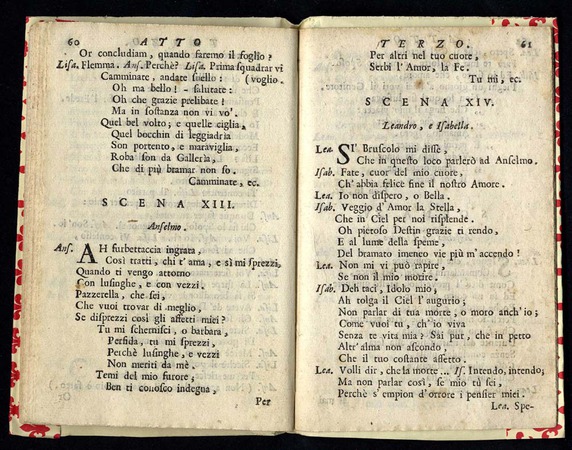 60 ATTO
Or concludiam, quando faremo il foglio?
Lisa. Flemma. Ans. Perchè? Lisa. Prima squadrar vi
Camminate, andate snello: (voglio.
Oh ma bello! - salutate:
Oh che grazie prelibate!
Ma in sostanza non vi vo'.
Quel bel volto; e quelle ciglia,
Quel bocchin di leggiadria
Son portento, e maraviglia,
Roba son da Gallerìa,
Che di più bramar non so.
Camminate, ec.
SCENA XIII.
Anselmo.
Ans. AH furbettaccia ingrata,
Così tratti, chi t'ama, e sì mi sprezzi,
Quando ti vengo attorno
Con lusinghe, e con vezzi.
Pazzerella, che sei,
Che vuoi trovar di meglio,
Se disprezzi così gli affetti miei?
Tu mi schernisci, o barbara,
Perfida, tu mi sprezzi,
Perchè lusinghe, e vezzi
Non meriti da mè.
Temi del mio furore;
Ben ti conosco indegna,
Per
TERZO. 61
Per altri nel tuo cuore,
Serbi l'Amor, la Fe.
Tu mi, ec.
SCENA XIV.
Leandro, e Isabella.
Lea. SI' Bruscolo mi disse,
Che in questo loco parlerò ad Anselmo.
Isab. Fate, cuor del mio cuore,
Ch'abbia felice fine il nostro Amore.
Lea. Io non dispero, o Bella.
Isab. Veggio d'Amor la Stella,
Che in Ciel per noi risplende.
Oh pietoso Destin grazie ti rendo,
E al lume della speme,
Del bramato imeneo vie più m'accendo!
Lea. Non mi vi può rapire,
Se non il mio morire.
Isab. Deh taci, Idolo mio,
Ah tolga il Ciel l'augurio;
Non parlar di tua morte, o moro anch'io;
Come vuoi tu, ch'io viva
Senza te vita mia? Sai put, che in petto
Altr'alma non ascondo,
Che il tuo costante affetto.
Lea. Volli dir, che la morte... Is. Intendo, intendo;
Ma non parlar così, se mio tu sei,
Perchè s'empion d'orrore i pensier miei.
Lea. Spe-